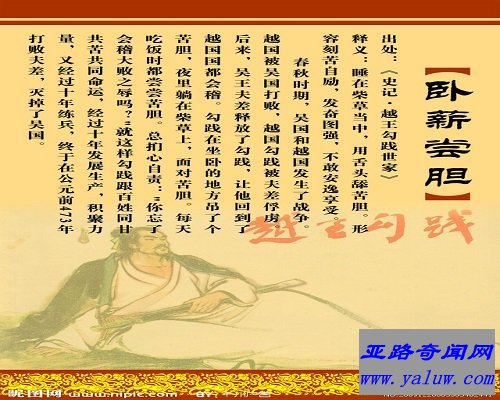 【卧薪尝胆】
出处：《史记·越王勾践世家》
释义：睡在柴草当中，用舌头舔苦胆。形
容刻苦自励，发奋图强，不敢安逸享受。
春秋时期，吴国和越国发生了战争。
越国被吴国打败，越国勾践被夫差俘虏。
后来，吴王夫差释放了勾践，让他回到了
越国国都会稽。勾践在坐卧的地方吊了个
苦胆，夜里躺在柴草上，面对苦胆。每天
吃饭时都尝尝苦胆。总扪心自责：“你忘了
会稽大败之辱吗？”就这样勾践跟百姓同甘
共苦共同命运，经过十年发展生产，积聚力
量，又经过十年练兵，终于在公元前473年
打败夫差，灭掉了吴国。
越王勾践
亚路奇闻网
www.yaluw.com
昵图网 www.nipic.com